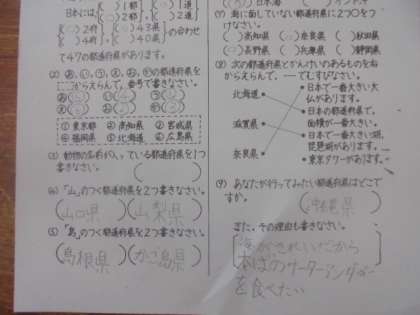 日本には、(○)1都、(○)1道
(○)2府、(○)43県の合わせ
て47都道府県があります。
(2) あ、い、う、え、お、かの都道府県を
からえらんで、番号で書きなさい。
① 東京都 ② 高知県 ③ 宮城県
④ 福岡県 ⑤ 北海道 ⑥ 広島県
(3) 動物の名前が入っている都道府県を1つ
書きなさい。
(4) 「山」のつく都道府県を2つ書きなさい。
(山口県)(山梨県)
(5) 「島」のつく都道府県を2つ書きなさい。
(島根県)(かご島県)
(7) 海に面していない都道府県に2つ○をつ
けなさい。
()高知県 (○)奈良県 ()秋田県
(○)長野県 ()兵庫県 ()静岡県
(8) 次の都道府県とかんけいのあるものを右
からえらんで、――でむすびなさい。
北海道
滋賀県
奈良県
日本で一番大きい大
仏があります。
日本の都道府県で、
面積が一番大きい。
日本で一番大きい湖、
琵琶湖があります。
東京タワーがあります。
(9) あなたが行ってみたい都道府県はどこで
すか。
また、その理由も書きなさい。
海がきれいだから
本ばのサーターアンダギー
を食べたい